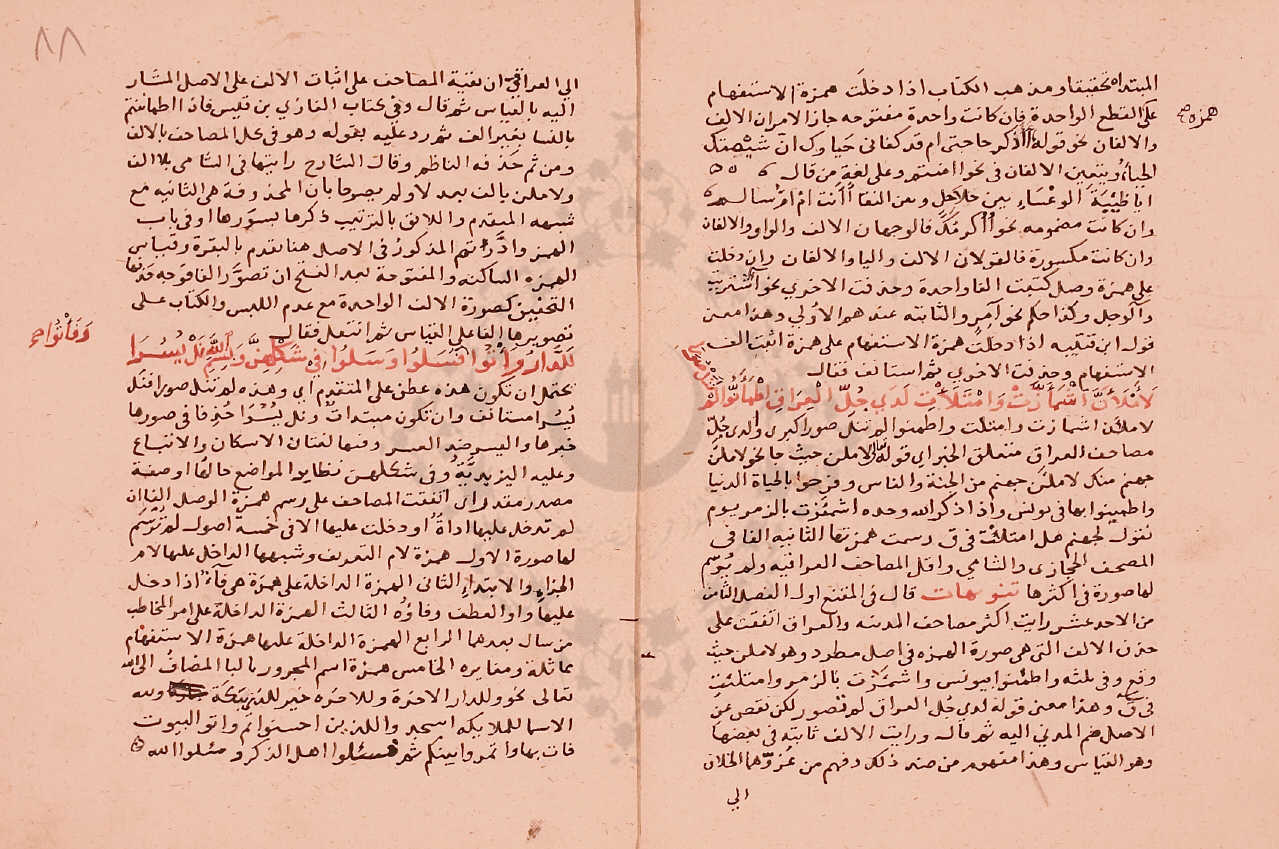 المبتداه تحقيقا ومذهب الكتاب اذا دخلت همزة الاستفهام
على القطع الواحدة فان كانت واحدة مفتوحه جاز الامران الالف
همزه صح
والالفان نحو قوله أأذكر حاجتي ام قد كفاني حياوك ان شيمتك
الحياء ويتعين الالفان في نحو اامنتم وعلى لغة من قال
ايا ظبية الوعساء بين جلاجل وبين النقا أأنت ام ام سالم
وان كانت مضمومه نحو أأكرمك فالوجهان الالف والواو والالفان
وان كانت مكسورة فالقولان الالف واليا والالفان وان دخلت
على همزة وصل كتبت الفا واحدة وحذفت الاخري نحو اشتريت
وآلرجل وكذا حكم نحو آمر والثانيه عندهم الاولي وهذا معنى
قول ابن قتيبه اذا دخلت همزة الاستفهام على همزة اثبت الف
الاستفهام وحذفت الاخري ثم استانف فقال
لأملأن اشمأزت وامتلأت لدى جل العراق اطمأنوا لم
تنل صورا
لاملئن اشمازت وامتلت واطمنوا لم تنل صورا كبرى ولدى جل
مصاحف العراق متعلق الخبر اي قوله تعالى لاملن حيث جا نحو لاملن
جهنم منك لاملئن جهنم من الجنة والناس وفرحوا بالحياة الدنيا
واطمينوا بها في يونس واذا ذكر الله وحده اشمئزت بالزمر يوم
نقول لجهنم هل امتلئت في ق رسمت همزتها الثانيه الفا في
المصحف الحجازي والشامي واقل المصاحف العراقيه ولم يرسم
لها صورة في اكثرها تنويهات قال في المقنع اول الفصل الثامن
من الاحد عشر رايت اكثر مصاحف المدينه والعراق اتفقت على
حذف الالف التي هي صورة الهمزه في اصل مطرد وهو لاملن حيث
وقع وفي ثلثه واطمنوا بيونس واشمئزت بالزمر وامتلئت
في ق وهذا معنى قوله لدي جل العراق لم تصور لكن نقص عن
الاصل ضم المدني اليه ثم قال ورايت الالف ثابته في بعضها
وهو القياس وهذا مفهوم من ضد ذلك وفهم من عزوهما الخلاف
الي
٨٨
الي العراقي ان بقية المصاحف على اثبات الالف على الاصل المشار
اليه بالقياس ثم قال وفي كتاب الغازي بن قيس فاذا اطماننتم
بالنسا بغير الف ثم رد عليه بقوله وهو في كل المصاحف بالالف
ومن ثم حذفه الناظم وقال الشارح رايتها في الشامي بلا الف
ولاملن بالف بعد لا ولم يصرحا بان المحذوفة هي الثانيه مع
شبهه المتقدم واللائق بالترتيب ذكرها بسورها او في باب
الهمز وادارأتم المذكور في الاصل هنا تقدم بالبقرة وقياس
الهمزه الساكنه والمفتوحة بعد الفتح ان تصور الفا فوجه حذفها
التخفيف كصورة الالف الواحدة مع عدم اللبس والكتاب على
تصويرها الفا على القياس ثم انتقل فقال
للدار وأتوا فسلوا وسلوا في شكلهن وبسم الله نل يسرا
وفأتوا صح
تحتمل ان تكون هذه عطف على المتقدم اي وهذه لم تنل صورا فنل
يسرا مستانف وان تكون مبتدات ونل يسرا حذفا في صورها
خبرها واليسر ضد العسر وفيها لغتان الاسكان والاتباع
وعليه اليزيدية وفي شكلهن نظاير المواضع حالها او صفة
مصدر مقدر اي اتفقت المصاحف على رسم همزة الوصل الفا ان
لم تدخل عليها اداة او دخلت عليها الا في خمسة اصول لم ترسم
لها صورة الاول همزة لام التعريف وشبهها الداخل عليها لام
الجزاء والابتداء الثاني الهمزة الداخلة على همزة هي فآء اذا دخل
عليها واو العطف وفاؤه الثالث الهمزة الداخلة على امر المخاطب
من سال بعدهما الرابع الهمزة الداخلة عليها همزة الاستفهام
مماثلة ومغايره الخامس همزة اسم المجرور بالبا المضاف الى الله
تعالى نحو وللدار الاخرة وللاخره خير للذي ببكة ولله
الاسما للملايكه اسجدوا للذين احسنوا ثم واتوا البيوت
فات بها واتمروا بينكم ثم فسئلوا اهل الذكر وسئلوا الله